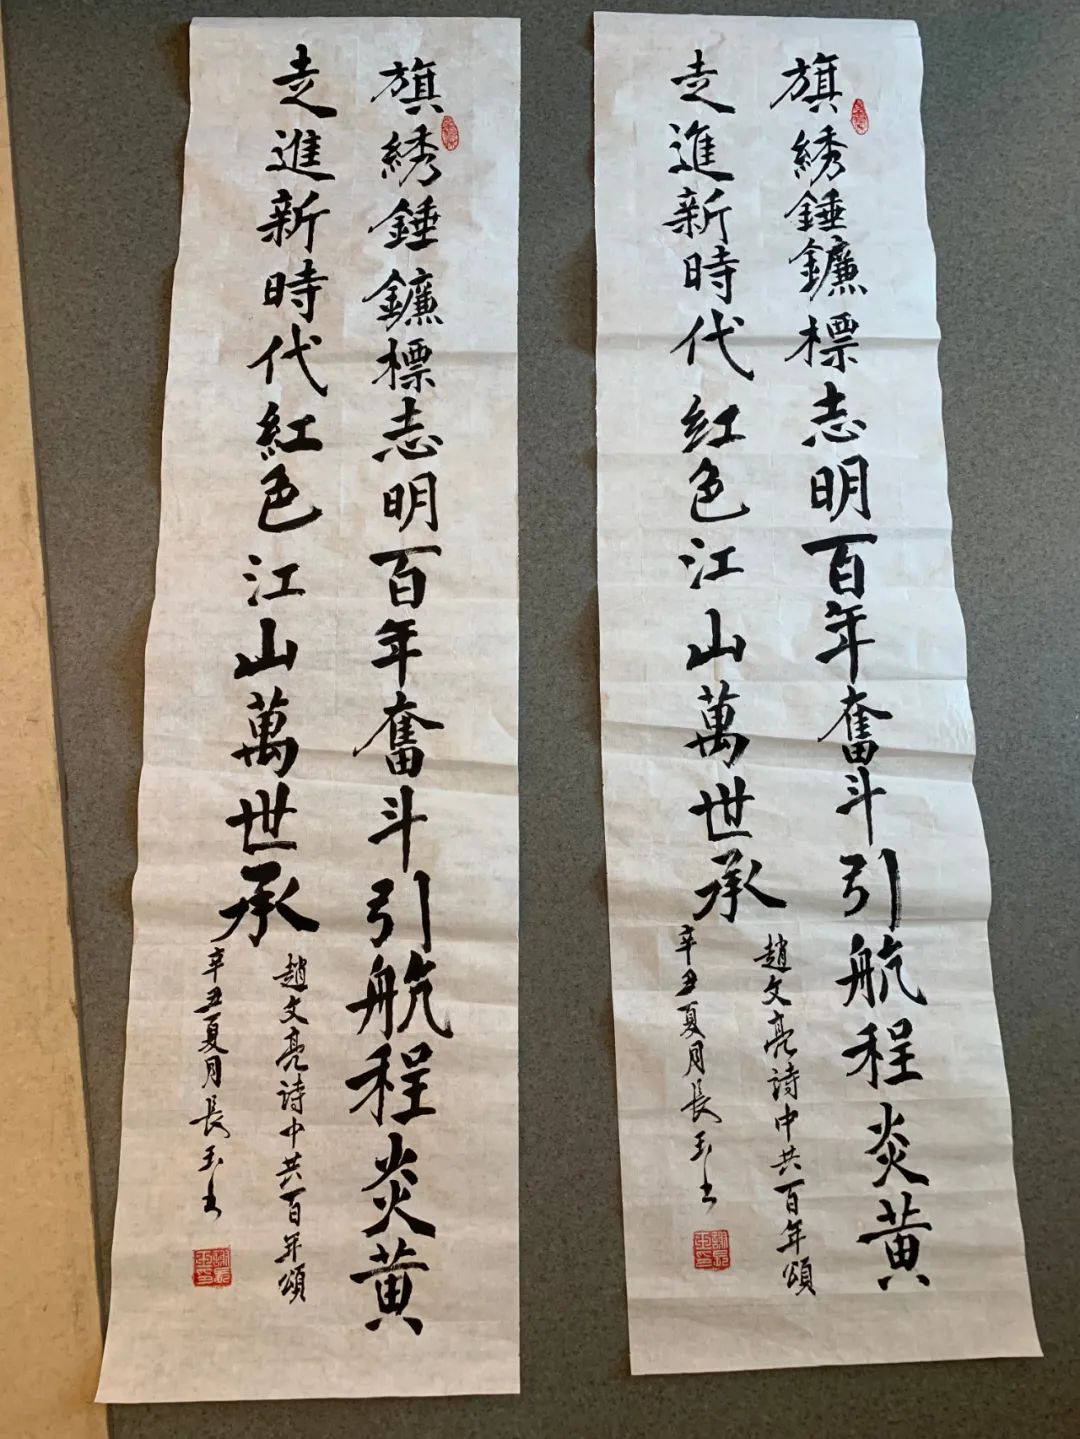 旗綉錘鐮標志明百年奮斗引航程炎黄
走進新時代紅色江山萬世承
趙文亮詩中共百年頌
辛丑夏月長玉书
旗綉錘鐮標志明百年奮斗引航程炎黄
走進新時代紅色江山萬世承
趙文亮詩中共百年頌
辛丑夏月長玉书